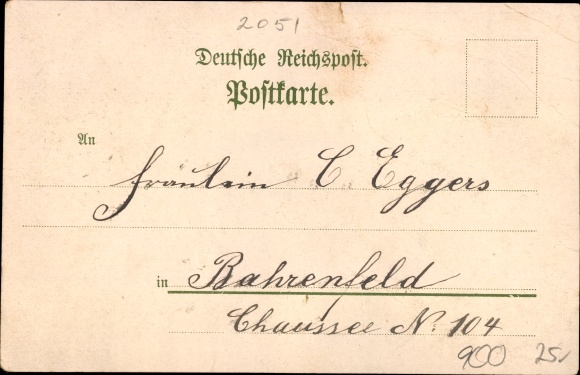 2051
Deutsche Reichspost.
Postkarte.
An
Fräulein C Eggers
in Bahrenfeld
Chaussee No 104
900 25,